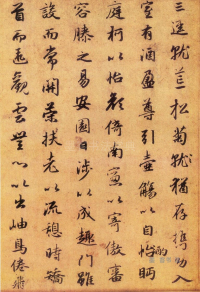 三逕就荒松菊猶存攜幼入
室有酒盈尊引壺觴以自怡眄
酌
庭柯以怡顏倚南窻以寄傲審
容膝之易安園日涉以成趣門雖
設而常關策扶老以流憩時矯
首而遐觀雲無心以出岫鳥倦飛